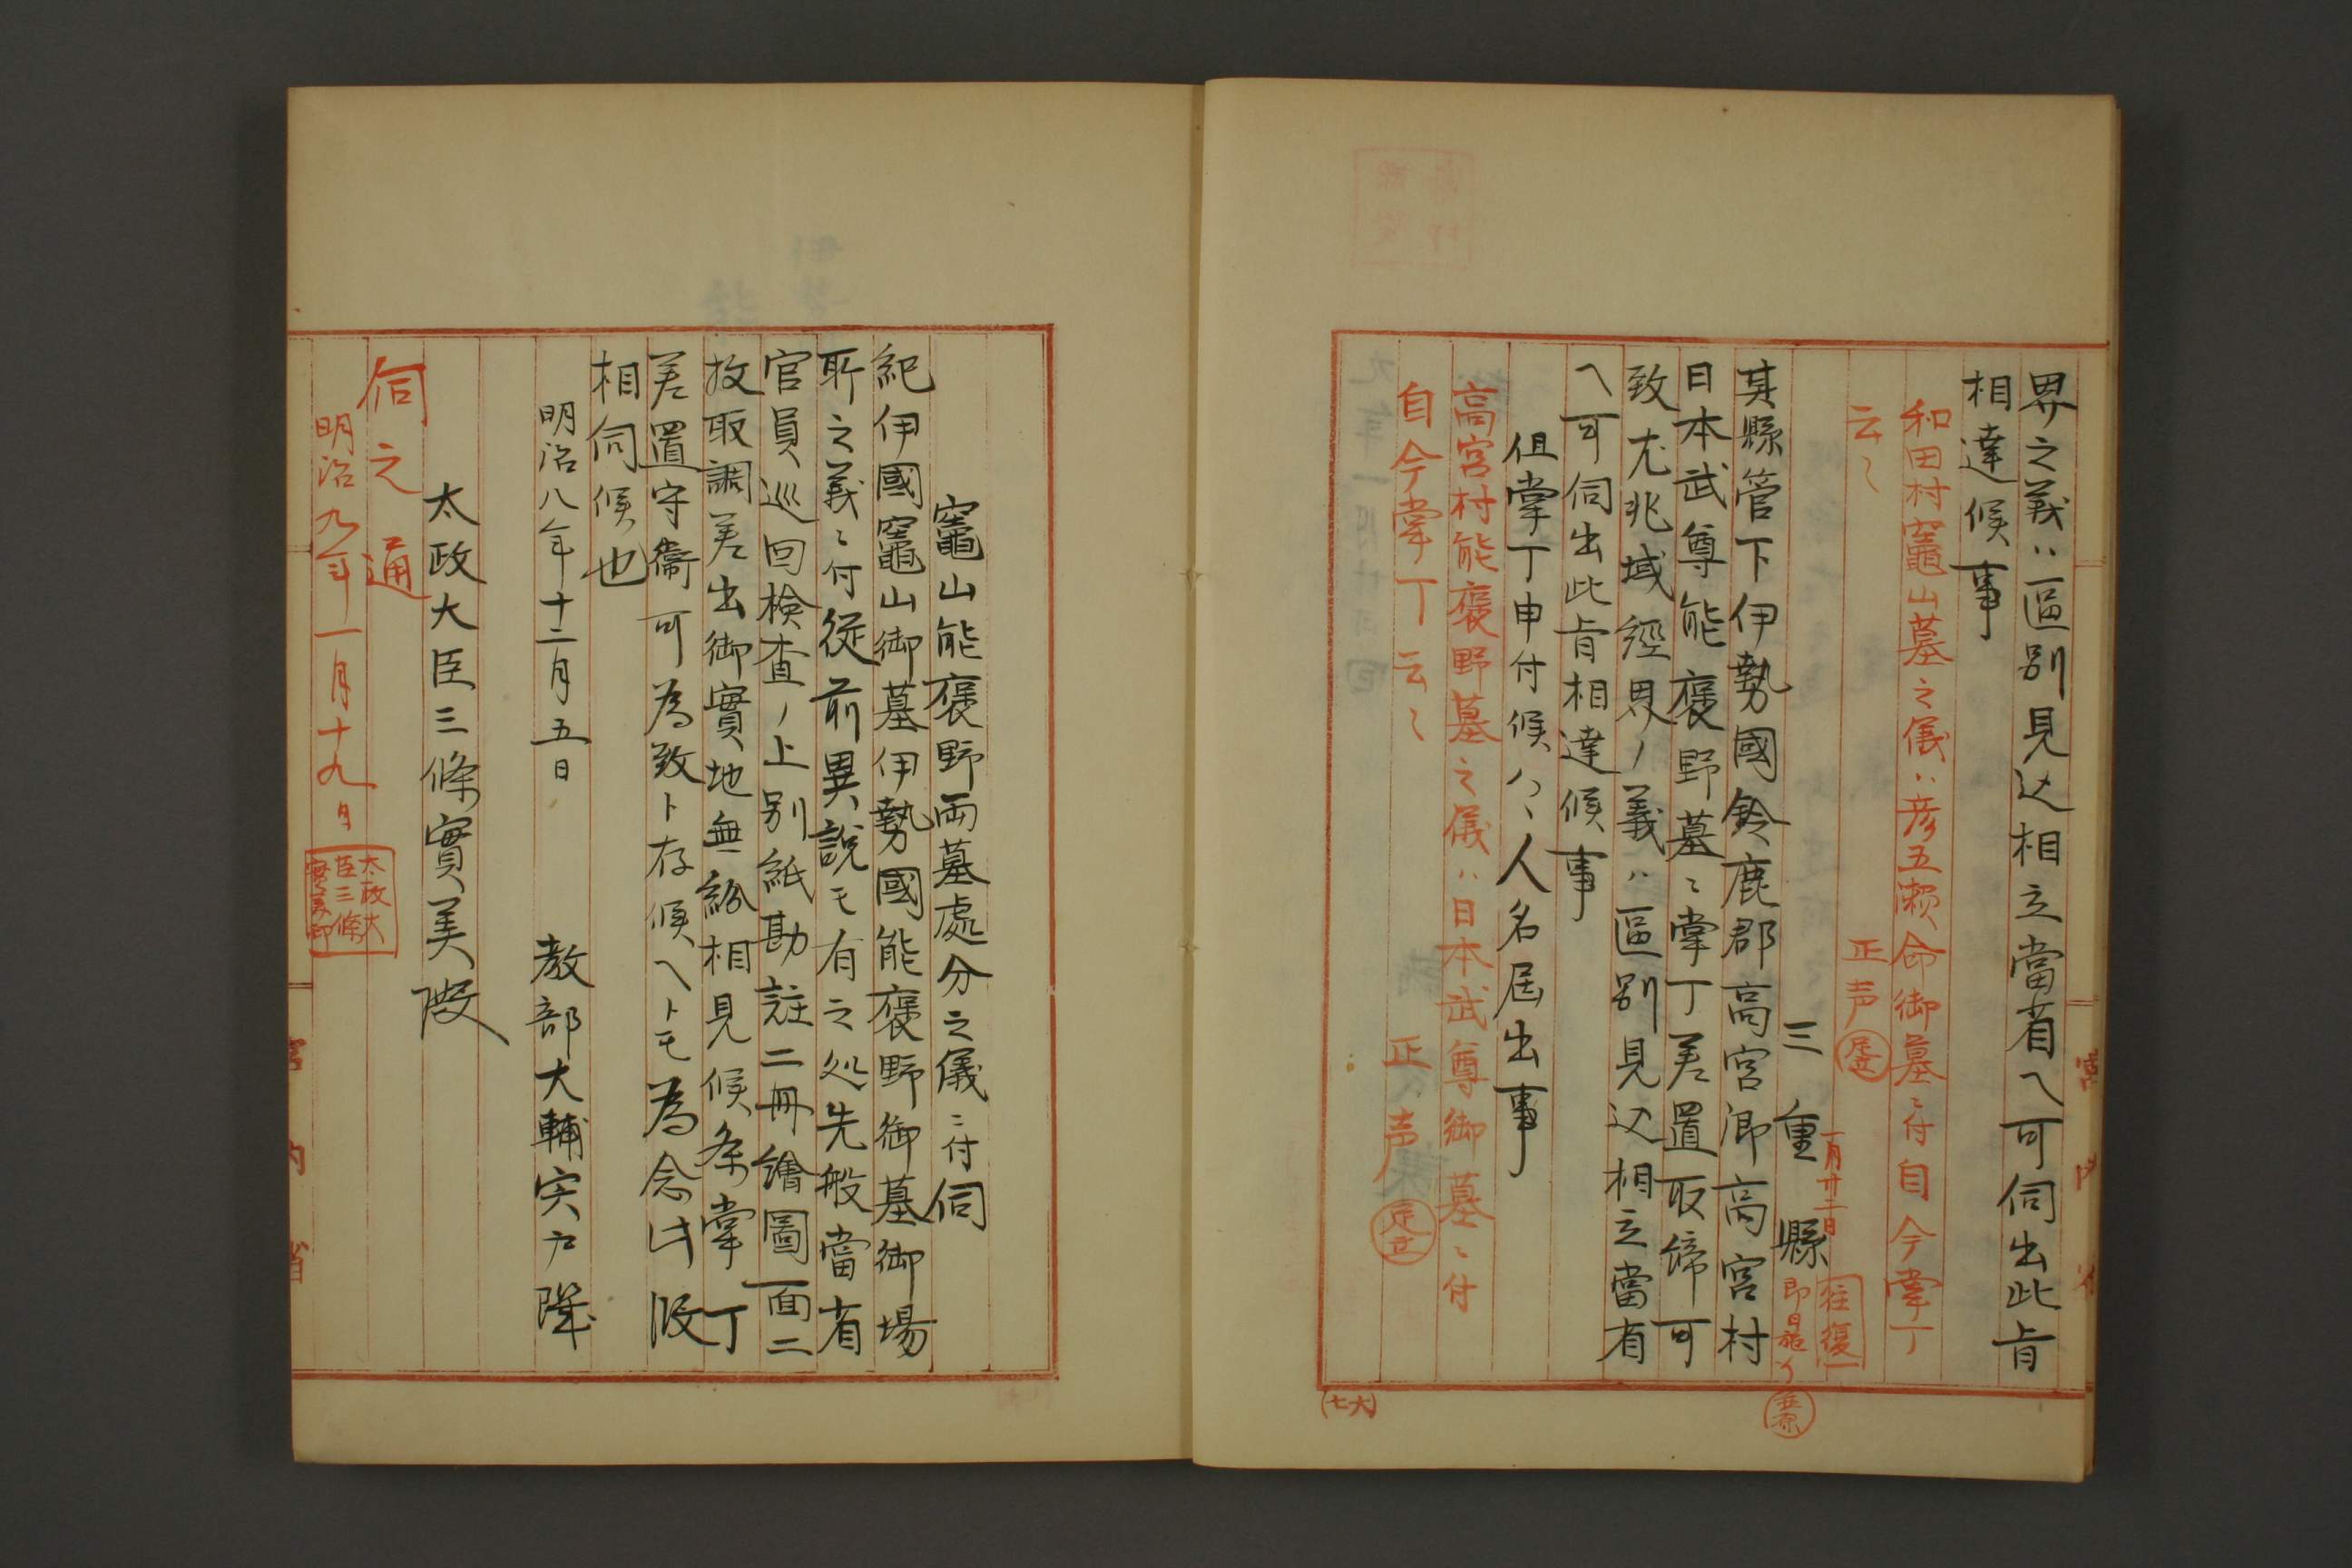 界之義ハ區別見込相立當省ヘ可伺出此旨
相達候事
和田村竈山墓之儀ハ彦五瀬命御墓ニ付自今掌丁
云〻
正声
足立
一月廿二日
往復
三重縣
即日施行
其縣管下伊勢國鈴鹿郡高宮鄉高宮村
日本武尊能褒野墓ニ掌丁差置取締可
致尤兆域經界ノ義ハ區別見込相立當省
ヘ可伺出此旨相達候事
但掌丁申付候ハヽ人名屆出事
高宮村能褒野墓之儀ハ日本武尊御墓ニ付
自今掌丁云〻
正声
足立
(七六)
竈山能褒野両墓處分之儀ニ付伺
紀伊國竈山御墓伊勢國能褒野御墓御場
所之義ニ付従前異説モ有之処先般當省
官員巡回檢査ノ上別紙勘註二冊繪圖一面二
枚取調差出御實地無紛相見候条掌丁
差置守衞可為致ト存候ヘトモ為念此段
相伺候也
明治八年十二月五日
教部大輔宍戸璣
太政大臣三條實美殿
伺之通
明治九年一月十九日
太政大
臣三條
實美印
宮内省